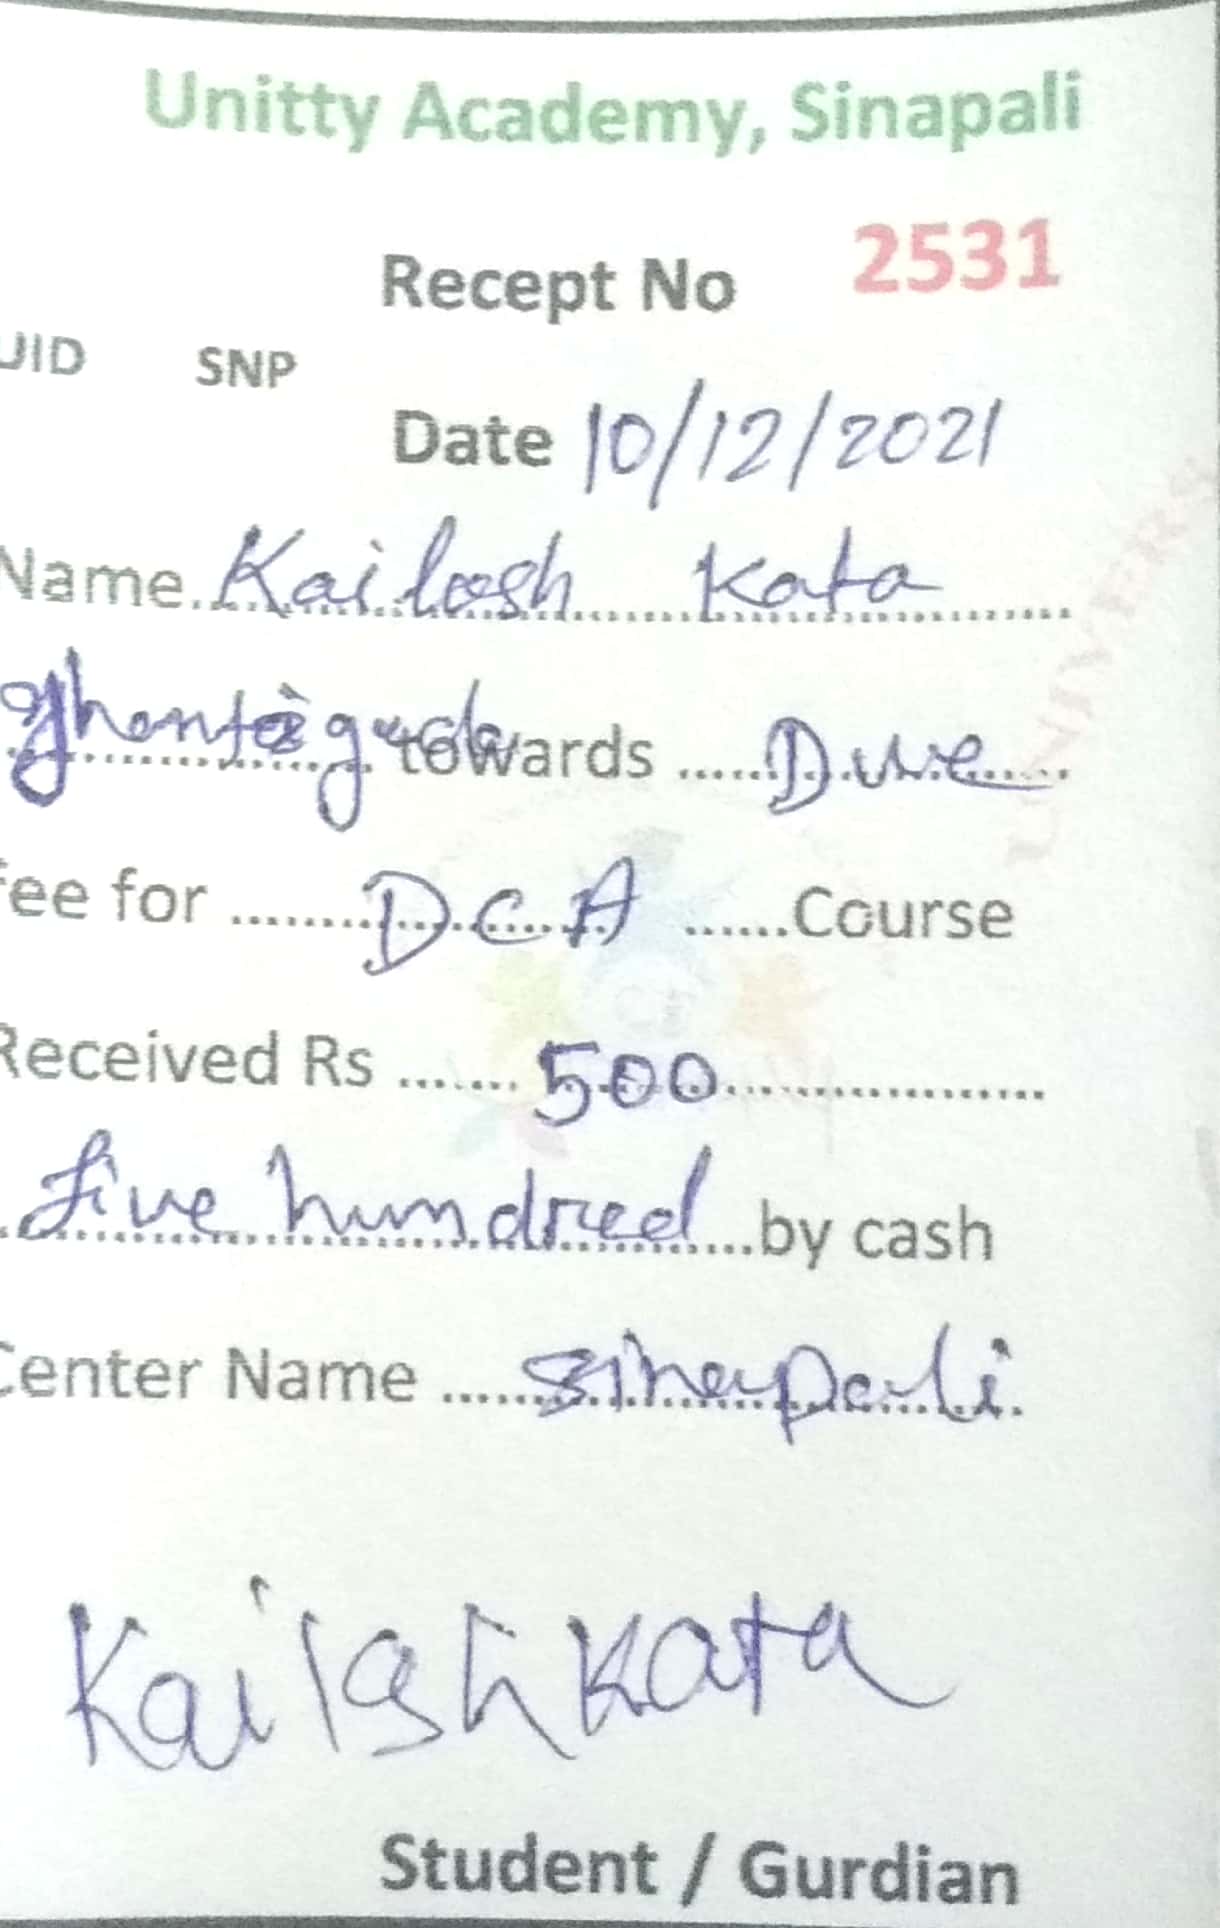 Unitty Academy, Sinapali
Recept No 2531
UID SNP
Date 10/12/2021
Name Kailash Kata
towards Due
fee for DCA Course
Received Rs 500
five hundred by cash
Center Name sinapali
Kailash Kata
Student / Gurdian